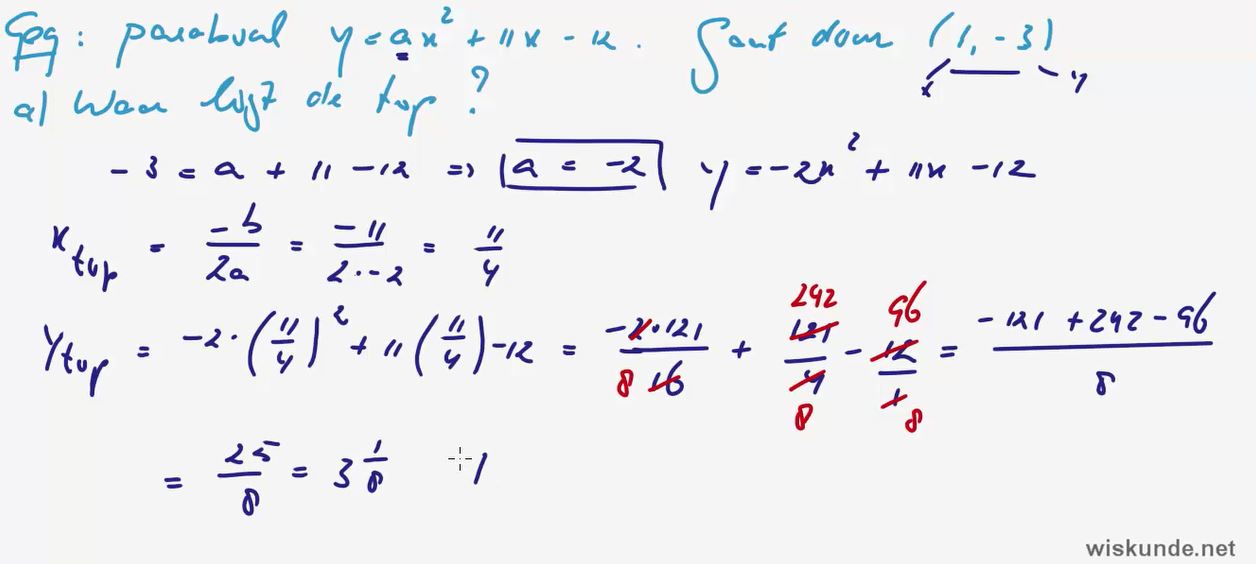 Geg : parabool y = ax² + 11x - 12. Gaat door (1, -3)
x y
a) Waar ligt de top ?
-3 = a + 11 - 12 => a = -2 y = -2x² + 11x - 12
x top = -b/2a = -11/2·-2 = 11/4
y top = -2·(11/4)² + 11(11/4) - 12 = -2·121/16 + 121/4 - 12/1 = -121 + 242 - 96/8
242 96
8 8 8
= 25/8 = 3 1/8
wiskunde.net